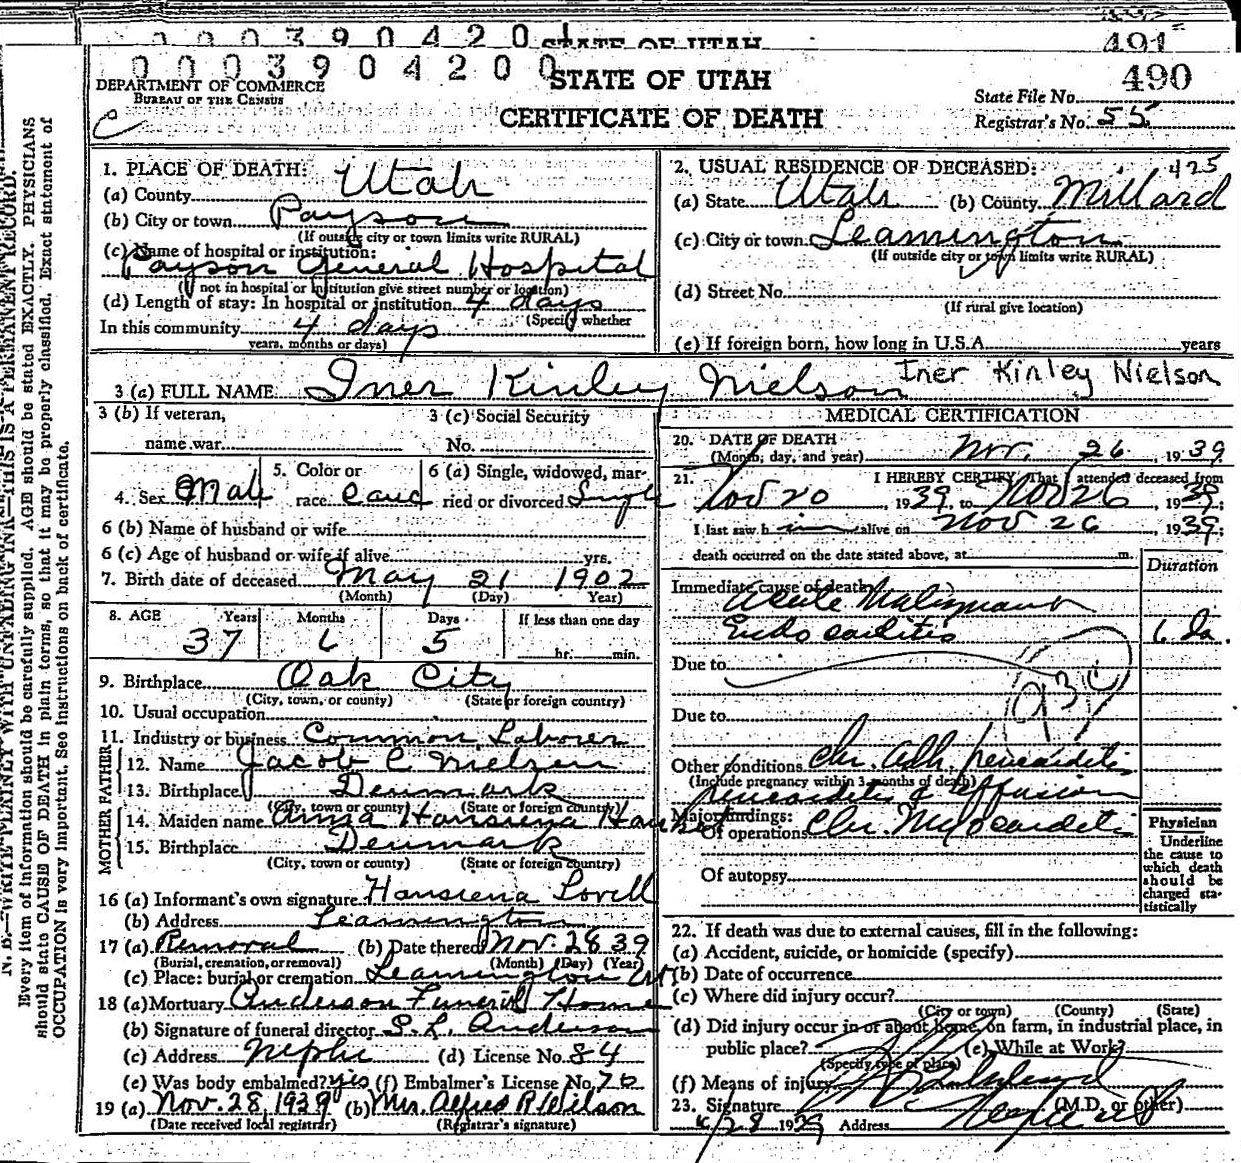 0 0 0 3 9 0 4 2 0 1 STATE OF UTAH 491
0 0 0 3 9 0 4 2 0 0 STATE OF UTAH 490
DEPARTMENT OF COMMERCE
BUREAU OF THE CENSUS
CERTIFICATE OF DEATH
State File No.
Registrar's No. 55
N. B.—WRITE PLAINLY WITH UNFADING INK—THIS IS A PERMANENT RECORD.
Every item of information should be carefully supplied. AGE should be stated EXACTLY. PHYSICIANS
should state CAUSE OF DEATH in plain terms, so that it may be properly classified. Exact statement of
OCCUPATION is very important. See instructions on back of certificate.
1. PLACE OF DEATH:
(a) County Utah
(b) City or town Payson
(If outside city or town limits write RURAL)
(c) Name of hospital or institution:
Payson General Hospital
(If not in hospital or institution give street number or location)
(d) Length of stay: In hospital or institution 4 days
(Specify whether
In this community 4 days
years, months or days)
2. USUAL RESIDENCE OF DECEASED: 425
(a) State Utah (b) County Millard
(c) City or town Leamington
(If outside city or town limits write RURAL)
(d) Street No.
(If rural give location)
(e) If foreign born, how long in U.S.A. years
3 (a) FULL NAME Iner Kinley Nielson Iner Kinley Nielson
3 (b) If veteran,
name war
3 (c) Social Security
No.
4. Sex Male
5. Color or
race Cauc
6 (a) Single, widowed, mar-
ried or divorced Single
6 (b) Name of husband or wife
6 (c) Age of husband or wife if alive yrs.
7. Birth date of deceased May 21 1902
(Month) (Day) Year)
8. AGE Years Months Days If less than one day
37 6 5 hr. min.
9. Birthplace Oak City
(City, town, or county) (State or foreign country)
10. Usual occupation
11. Industry or business Common Laborer
FATHER
12. Name Jacob C Nielsen
13. Birthplace Denmark
(City, town or county) (State or foreign country)
MOTHER
14. Maiden name Anna Hansiena
15. Birthplace Denmark
(City, town or county) (State or foreign country)
16 (a) Informant's own signature Hansiena Lovell
(b) Address Leamington
17 (a) Removal (b) Date thereof Nov. 28 39
(Burial, cremation, or removal) (Month) (Day) (Year)
(c) Place: burial or cremation Leamington Ut
18 (a) Mortuary Anderson Funeral Home
(b) Signature of funeral director S. L. Anderson
(c) Address Nephi (d) License No. 84
(e) Was body embalmed? yes (f) Embalmer's License No.
19 (a) Nov. 28, 1939 (b) Mrs. Alfred R Wilson
(Date received local registrar) (Registrar's signature)
MEDICAL CERTIFICATION
20. DATE OF DEATH
(Month, day, and year) Nov. 26, 1939
21. I HEREBY CERTIFY, That I attended deceased from
Nov 20, 1939, to Nov 26, 1939;
I last saw h im alive on Nov 26 1939;
death occurred on the date stated above, at m.
Duration
Immediate cause of death
Acute Malignant
Endocarditis 6 da.
Due to
Due to
Other conditions Chr. Adh. pericarditis
(Include pregnancy within 3 months of death)
pericarditis c effusion
Major findings:
Of operations Chr. Myocarditis
Of autopsy
Physician
Underline
the cause to
which death
should be
charged sta-
tistically
22. If death was due to external causes, fill in the following:
(a) Accident, suicide, or homicide (specify)
(b) Date of occurrence
(c) Where did injury occur?
(City or town) (County) (State)
(d) Did injury occur in or about home, on farm, in industrial place, in
public place? (e) While at Work?
(Specify type of place)
(f) Means of injury
23. Signature (M.D. or other)
28 1939 Address